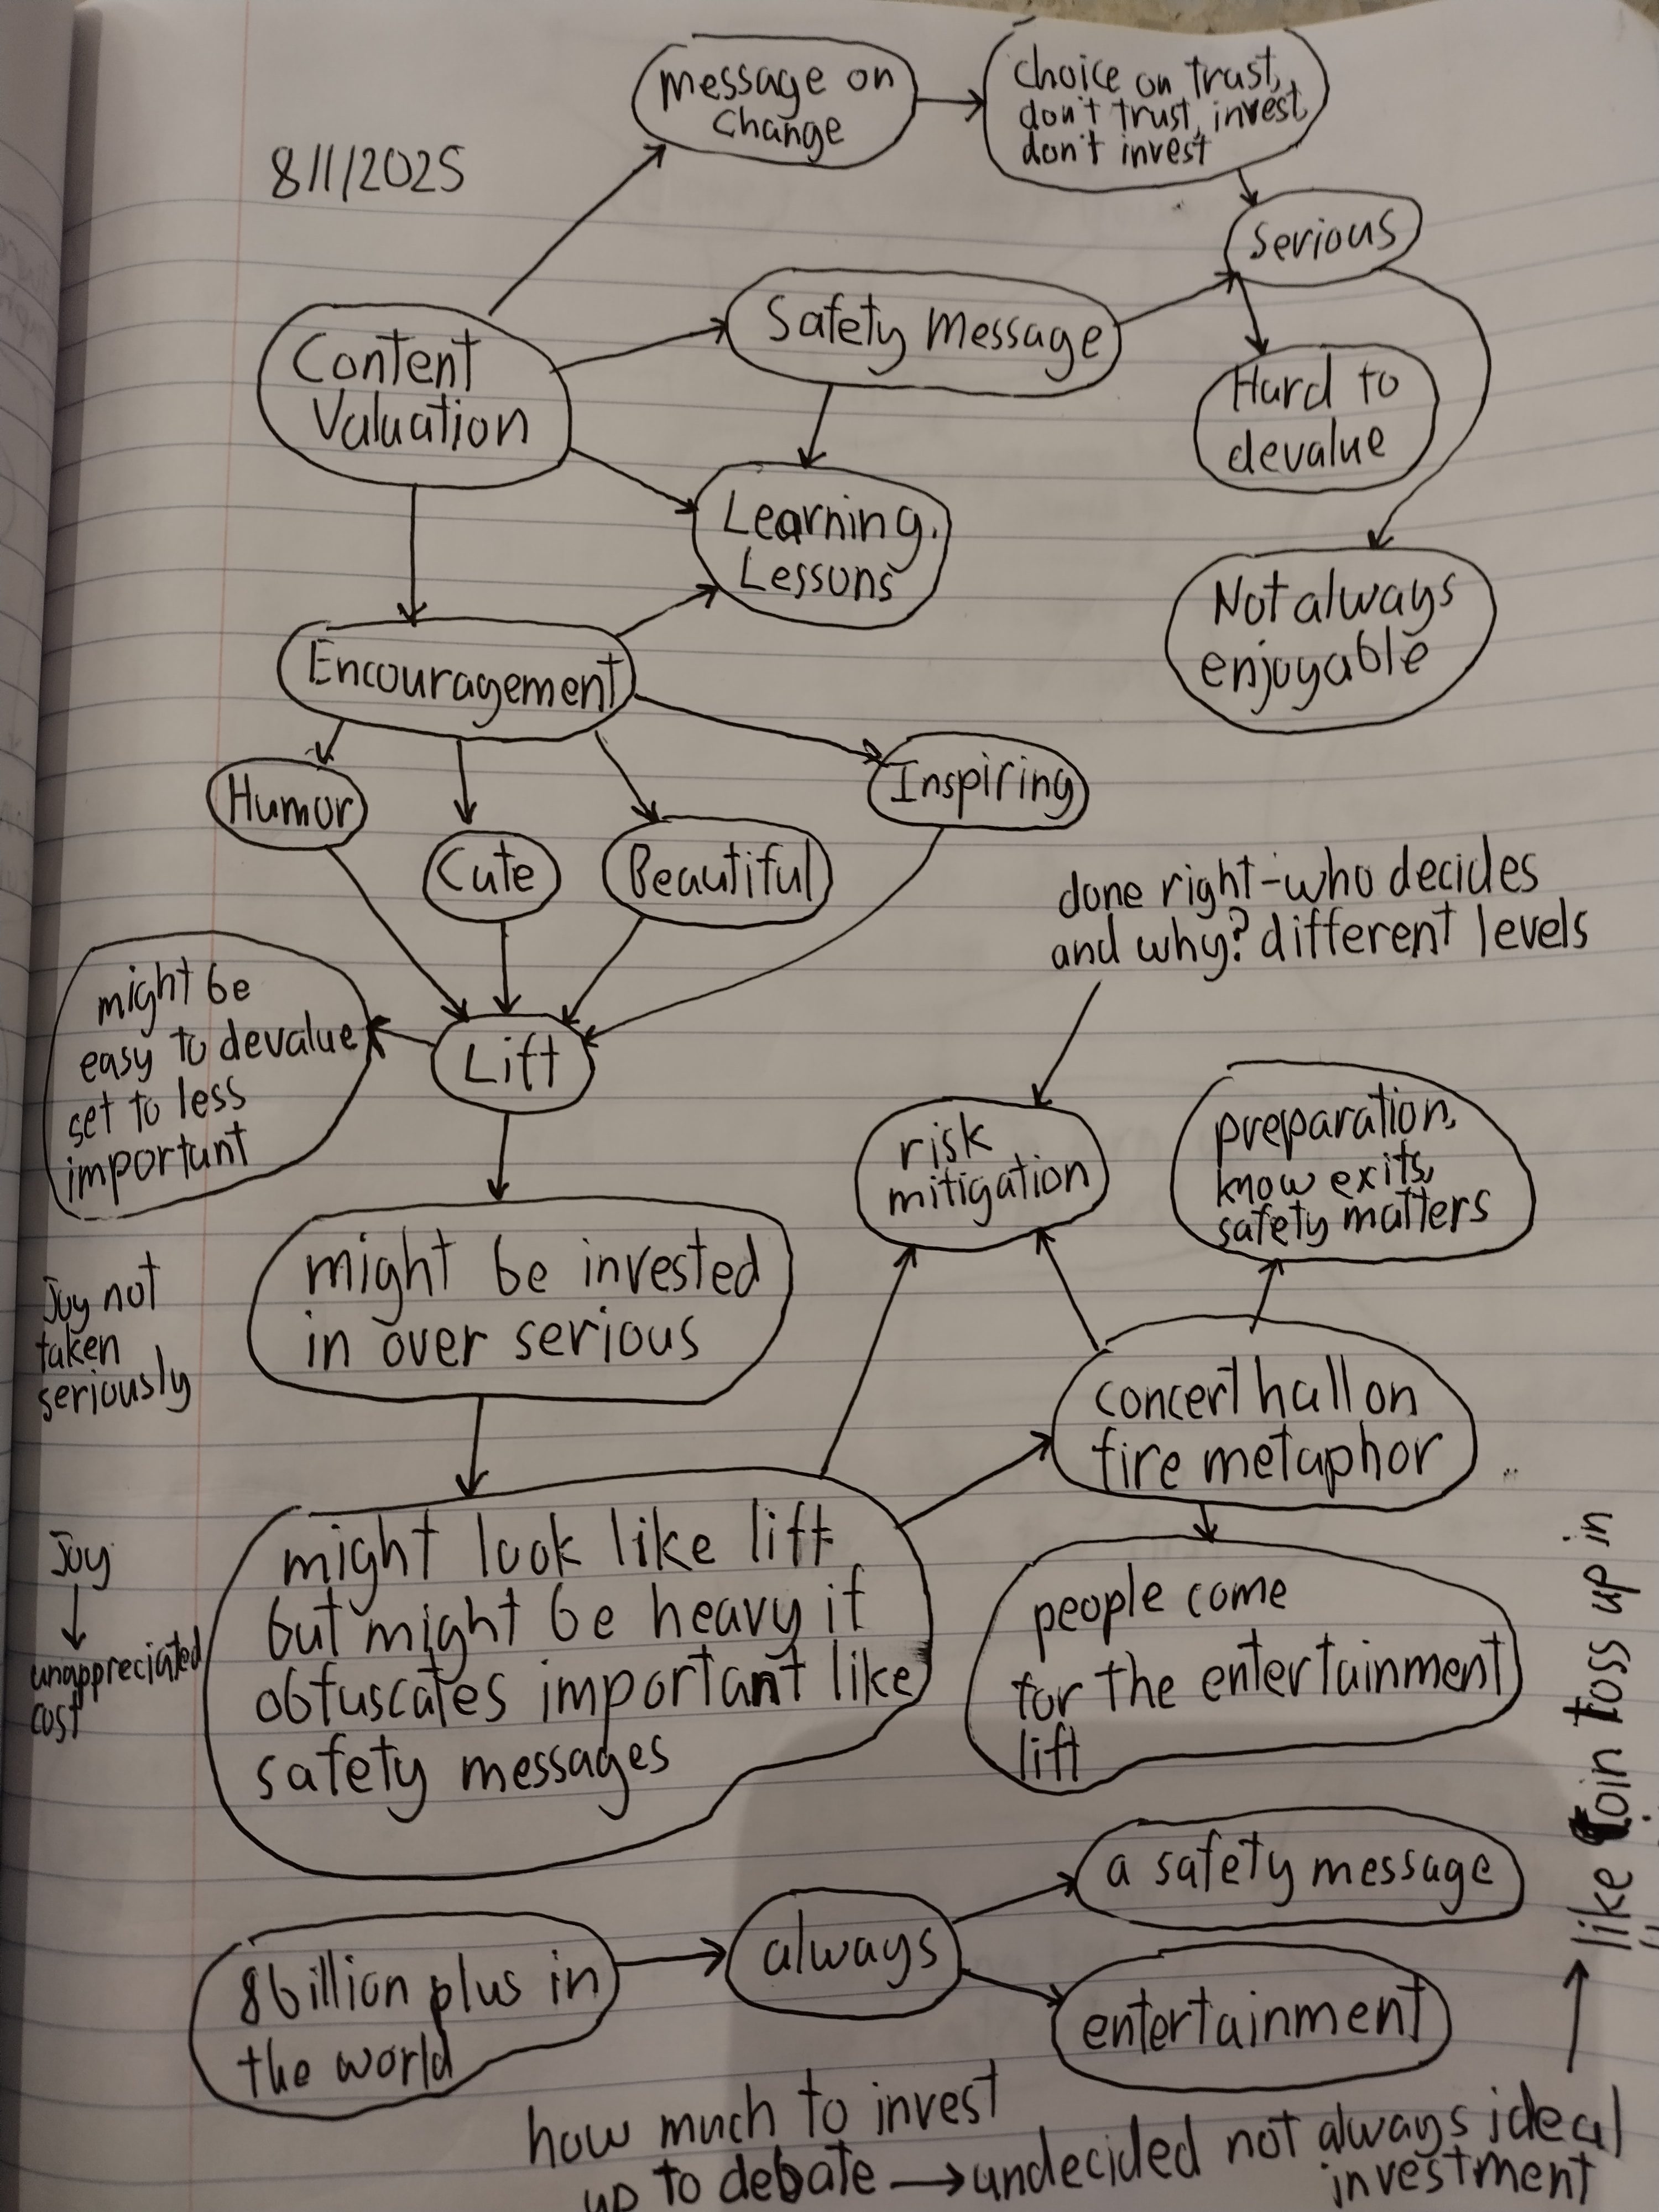 8/1/2025
message on
change
choice on trust,
don't trust, invest
don't invest
serious
Safety message
Content
Valuation
Hard to
devalue
Learning.
Lessons
Not always
enjoyable
Encouragement
Humor
Cute
Beautiful
Inspiring
done right-who decides
and why? different levels
might be
easy to devalue
set to less
important
Lift
risk
mitigation
preparation,
know exits,
safety matters
Joy not
taken
seriously
might be invested
in over serious
concert hall on
fire metaphor
Joy
unappreciated
cost
might look like lift
but might be heavy if
obfuscates important like
safety messages
people come
for the entertainment
lift
8 billion plus in
the world
always
a safety message
entertainment
how much to invest
up to debate → undecided not always ideal
investment
like coin toss up in